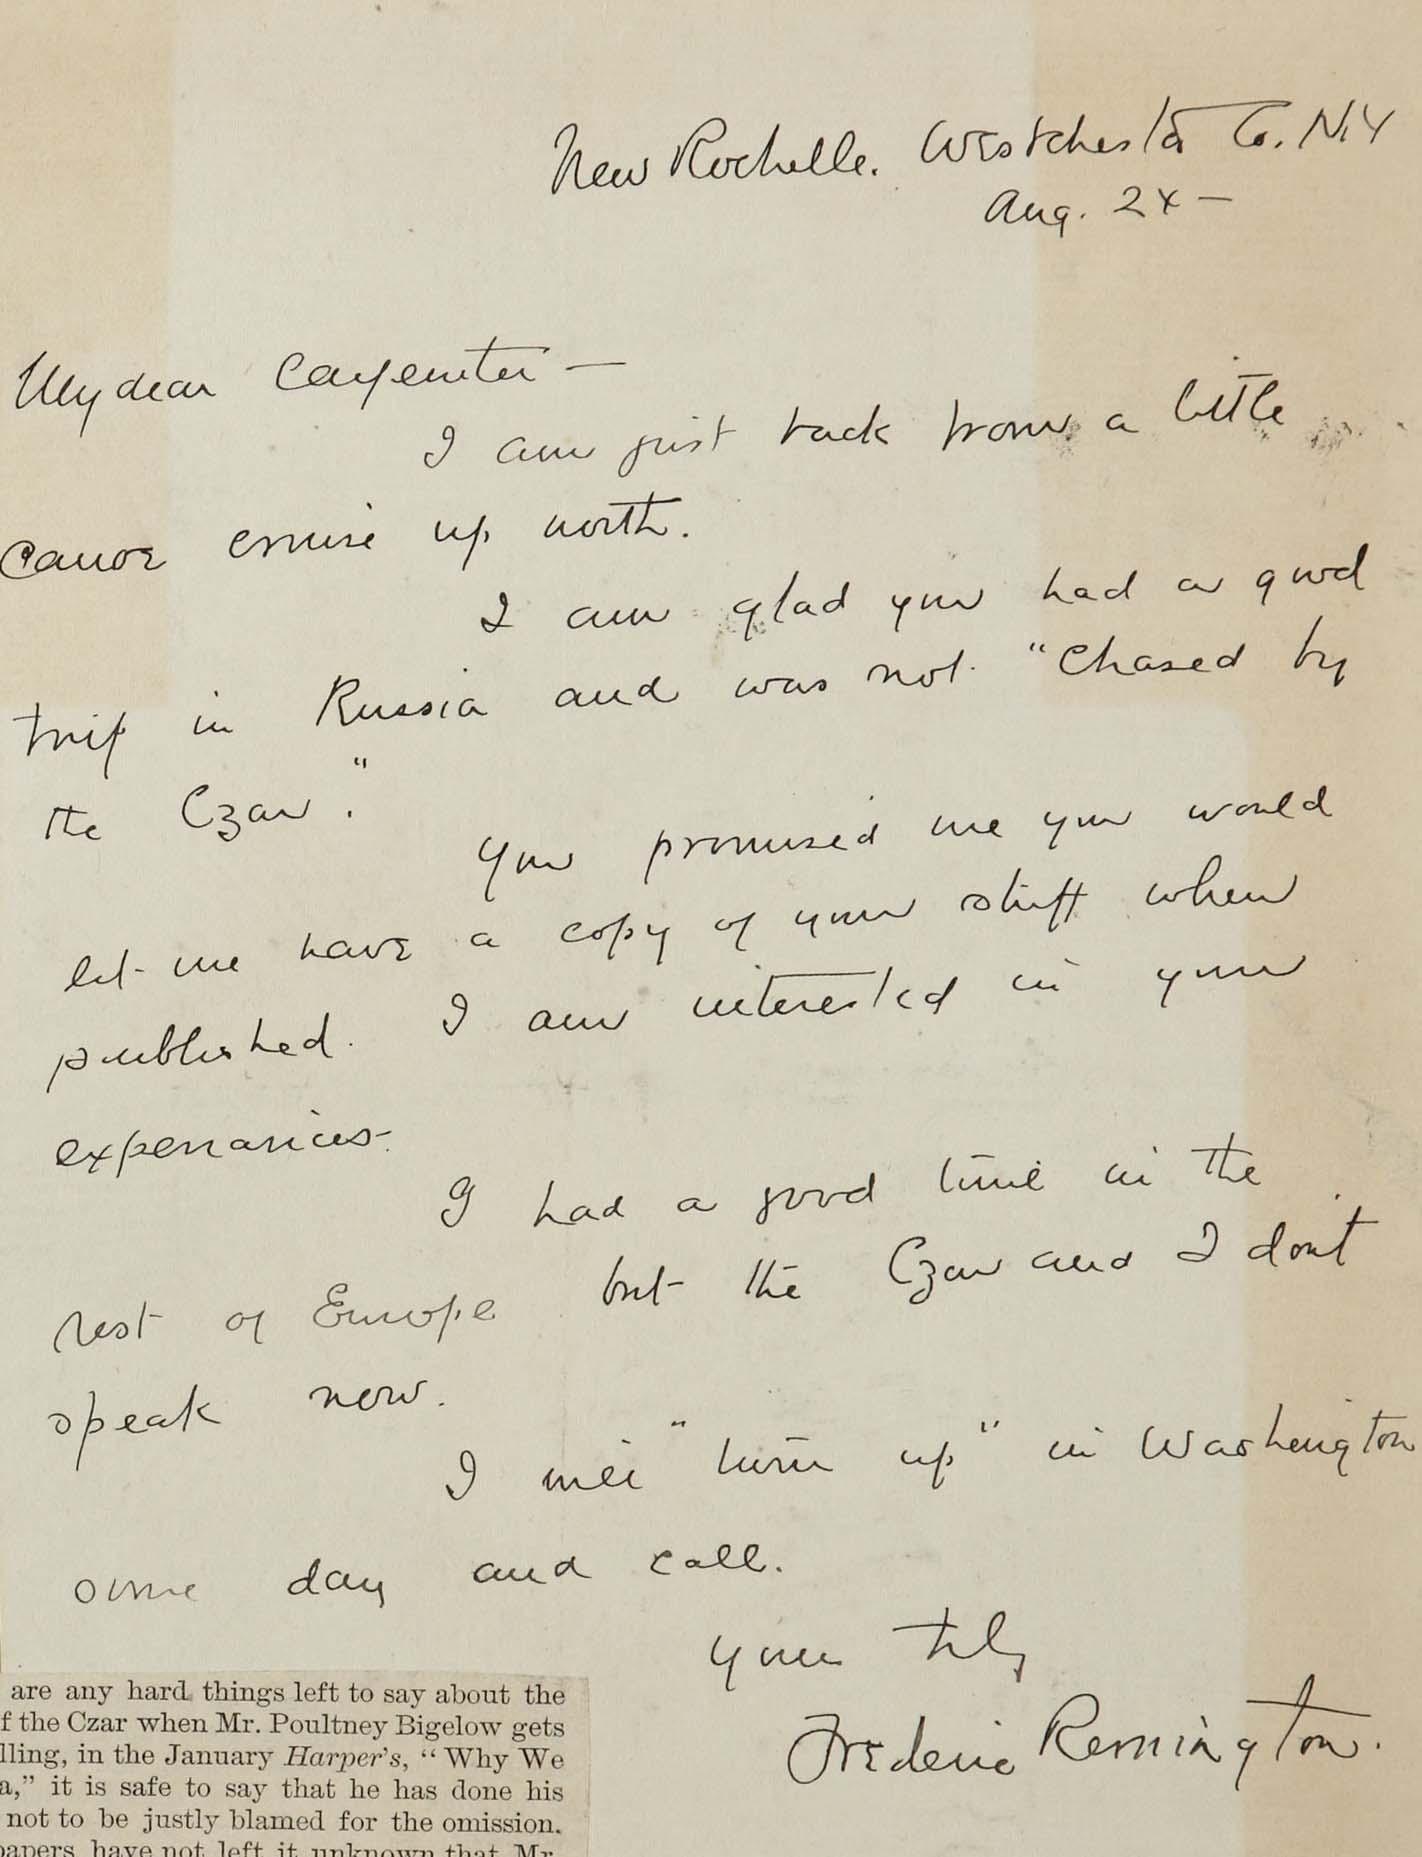 New Rochelle. Westchester Co. N.Y
Aug. 24 —
My dear Carpenter —
I am just back from a little
canoe cruise up north.
I am glad you had a good
trip in Russia and was not "chased by
the Czar."
You promised me you would
let me have a copy of your stuff when
published. I am interested in your
experiances.
I had a good time in the
rest of Europe but the Czar and I don't
speak now.
I will "turn up" in Washington
some day and call.
Yours truly
Frederic Remington.
are any hard things left to say about the
f the Czar when Mr. Poultney Bigelow gets
lling, in the January Harper's, "Why We
a," it is safe to say that he has done his
not to be justly blamed for the omission.
papers have not left it unknown that Mr.